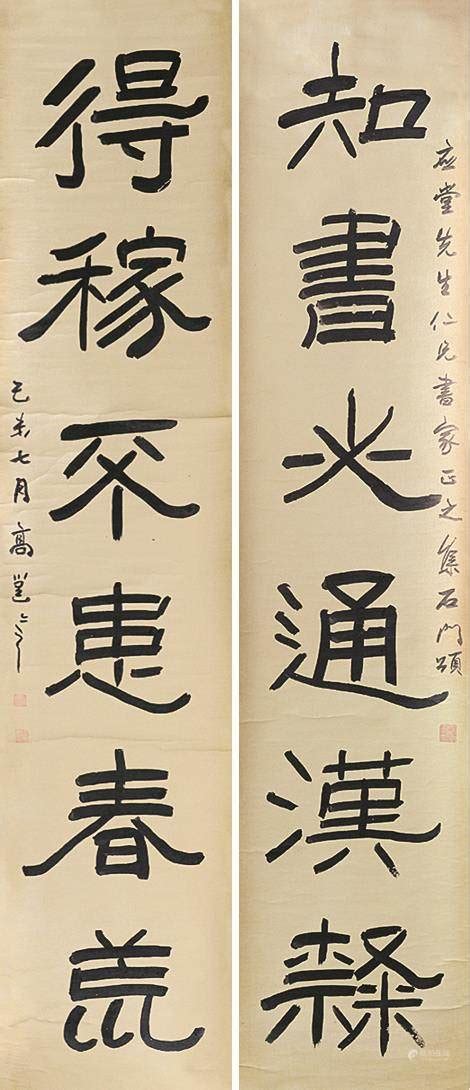 應堂先生仁兄書家正之集石門頌
知書必通漢隸
得稼不患春荒
己未七月高邕之